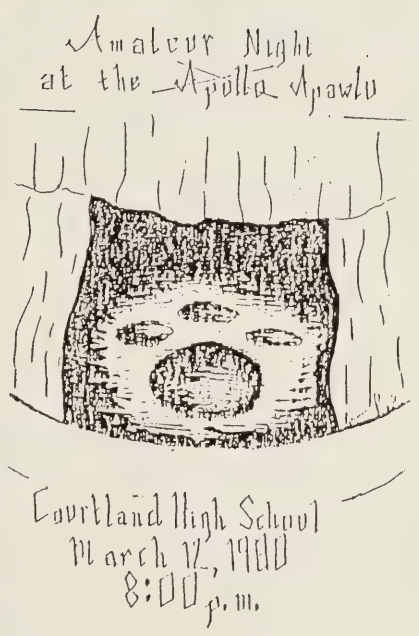 Amateur Night
at the Apollo Apawlo
Courtland High School
March 12,
8:00 p.m.